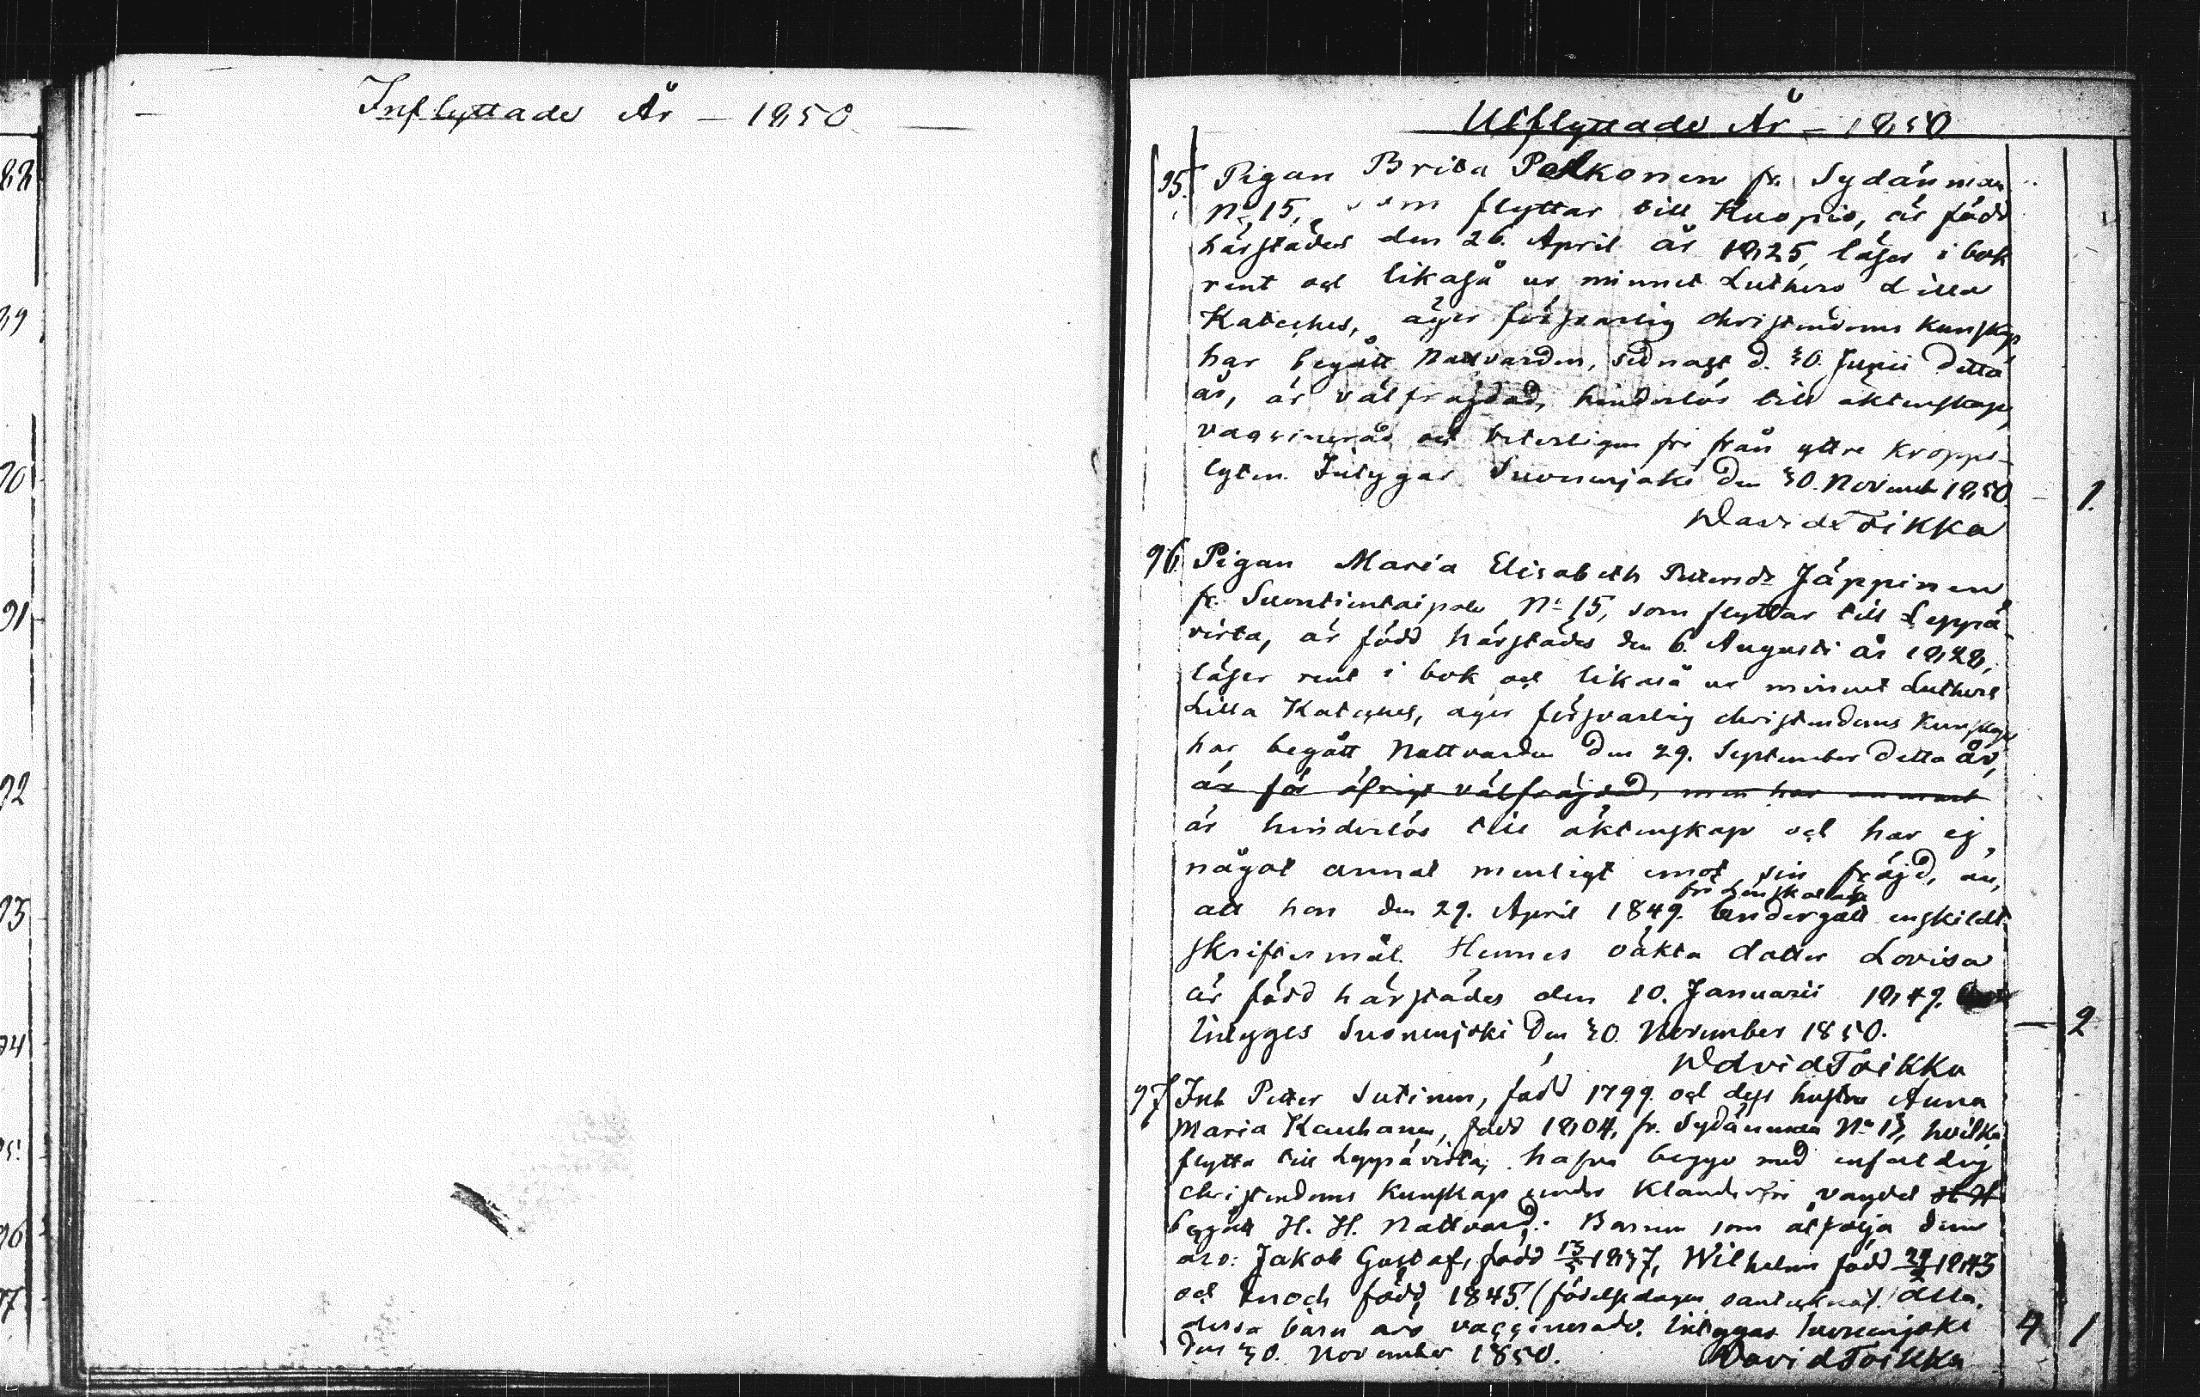 Inflyttade År — 1850
Utflyttade År – 1850
95. Pigan Brita Pelkonen fr. Sydänmaa
No 15, som flyttar till Kuopio, är född
härstädes den 26. April år 1825, läser i bok
rent och likaså ur minnet Luthers Lilla
Kateches, äger försvarlig christendoms kunskap
har begått Nattvarden, sednast d. 30. Junii detta
år, är välfräjdad, hinderlös till äktenskap,
vaccinerad och veterligen fri från yttre kropps-
lyten. Intygar Suonenjoki den 30. Novemb 1850. 1.
David Toikka
96. Pigan Maria Elisabeth Pettersdr Jäppinen
fr. Suontientaipale No 15, som flyttar till Leppä-
virta, är född härstädes den 6. Augusti år 1828,
läser rent i bok och likaså ur minnet Luthers
Lilla Kateches, äger försvarlig christendoms kunskap
har begått Nattvarden den 29. September detta år,
är för öfrigt välfräjdad, men har
är hinderlös till äktenskap och har ej
något annat menligt emot sin fräjd, än,
för lönskaläge
att hon den 29. April 1849. undergått enskildt
skriftermål. Hennes oäkta dotter Lovisa
är född härstädes den 10. Januarii 1849.
Intyges Suonenjoki den 30. November 1850. — 2
David Toikka
97 Inh Petter Sutinen, född 1799. och dess hustru Anna
Maria Kauhanen, född 1804, fr. Sydänmaa No 13, hvilka
flytta till Leppävirta, hafva begge med enfaldig
christendoms kunskap under klanderfri vandel
begått H. H. Nattvard. Barnen som åtfölja dem
äro: Jakob Gustaf, född 13/5 1837, Wilhelm född 29/2 1843
och Enoch född 1845. (födelsedagen oantecknad.) alla
dessa barn äro vaccinerade. Intygar Suonenjoki 4 1
den 30. November 1850. David Toikka
88
89
90
91
92
93
94
95.
96
97